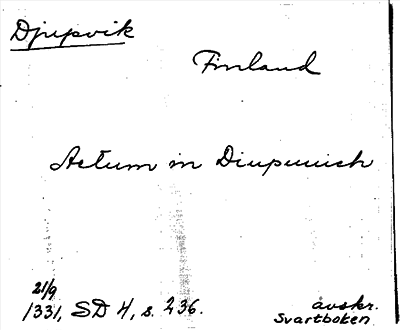 Djupvik
Finland
Actum in Diupuuich
21/9
1331, SD 4, s. 236.
avskr.
Svartboken